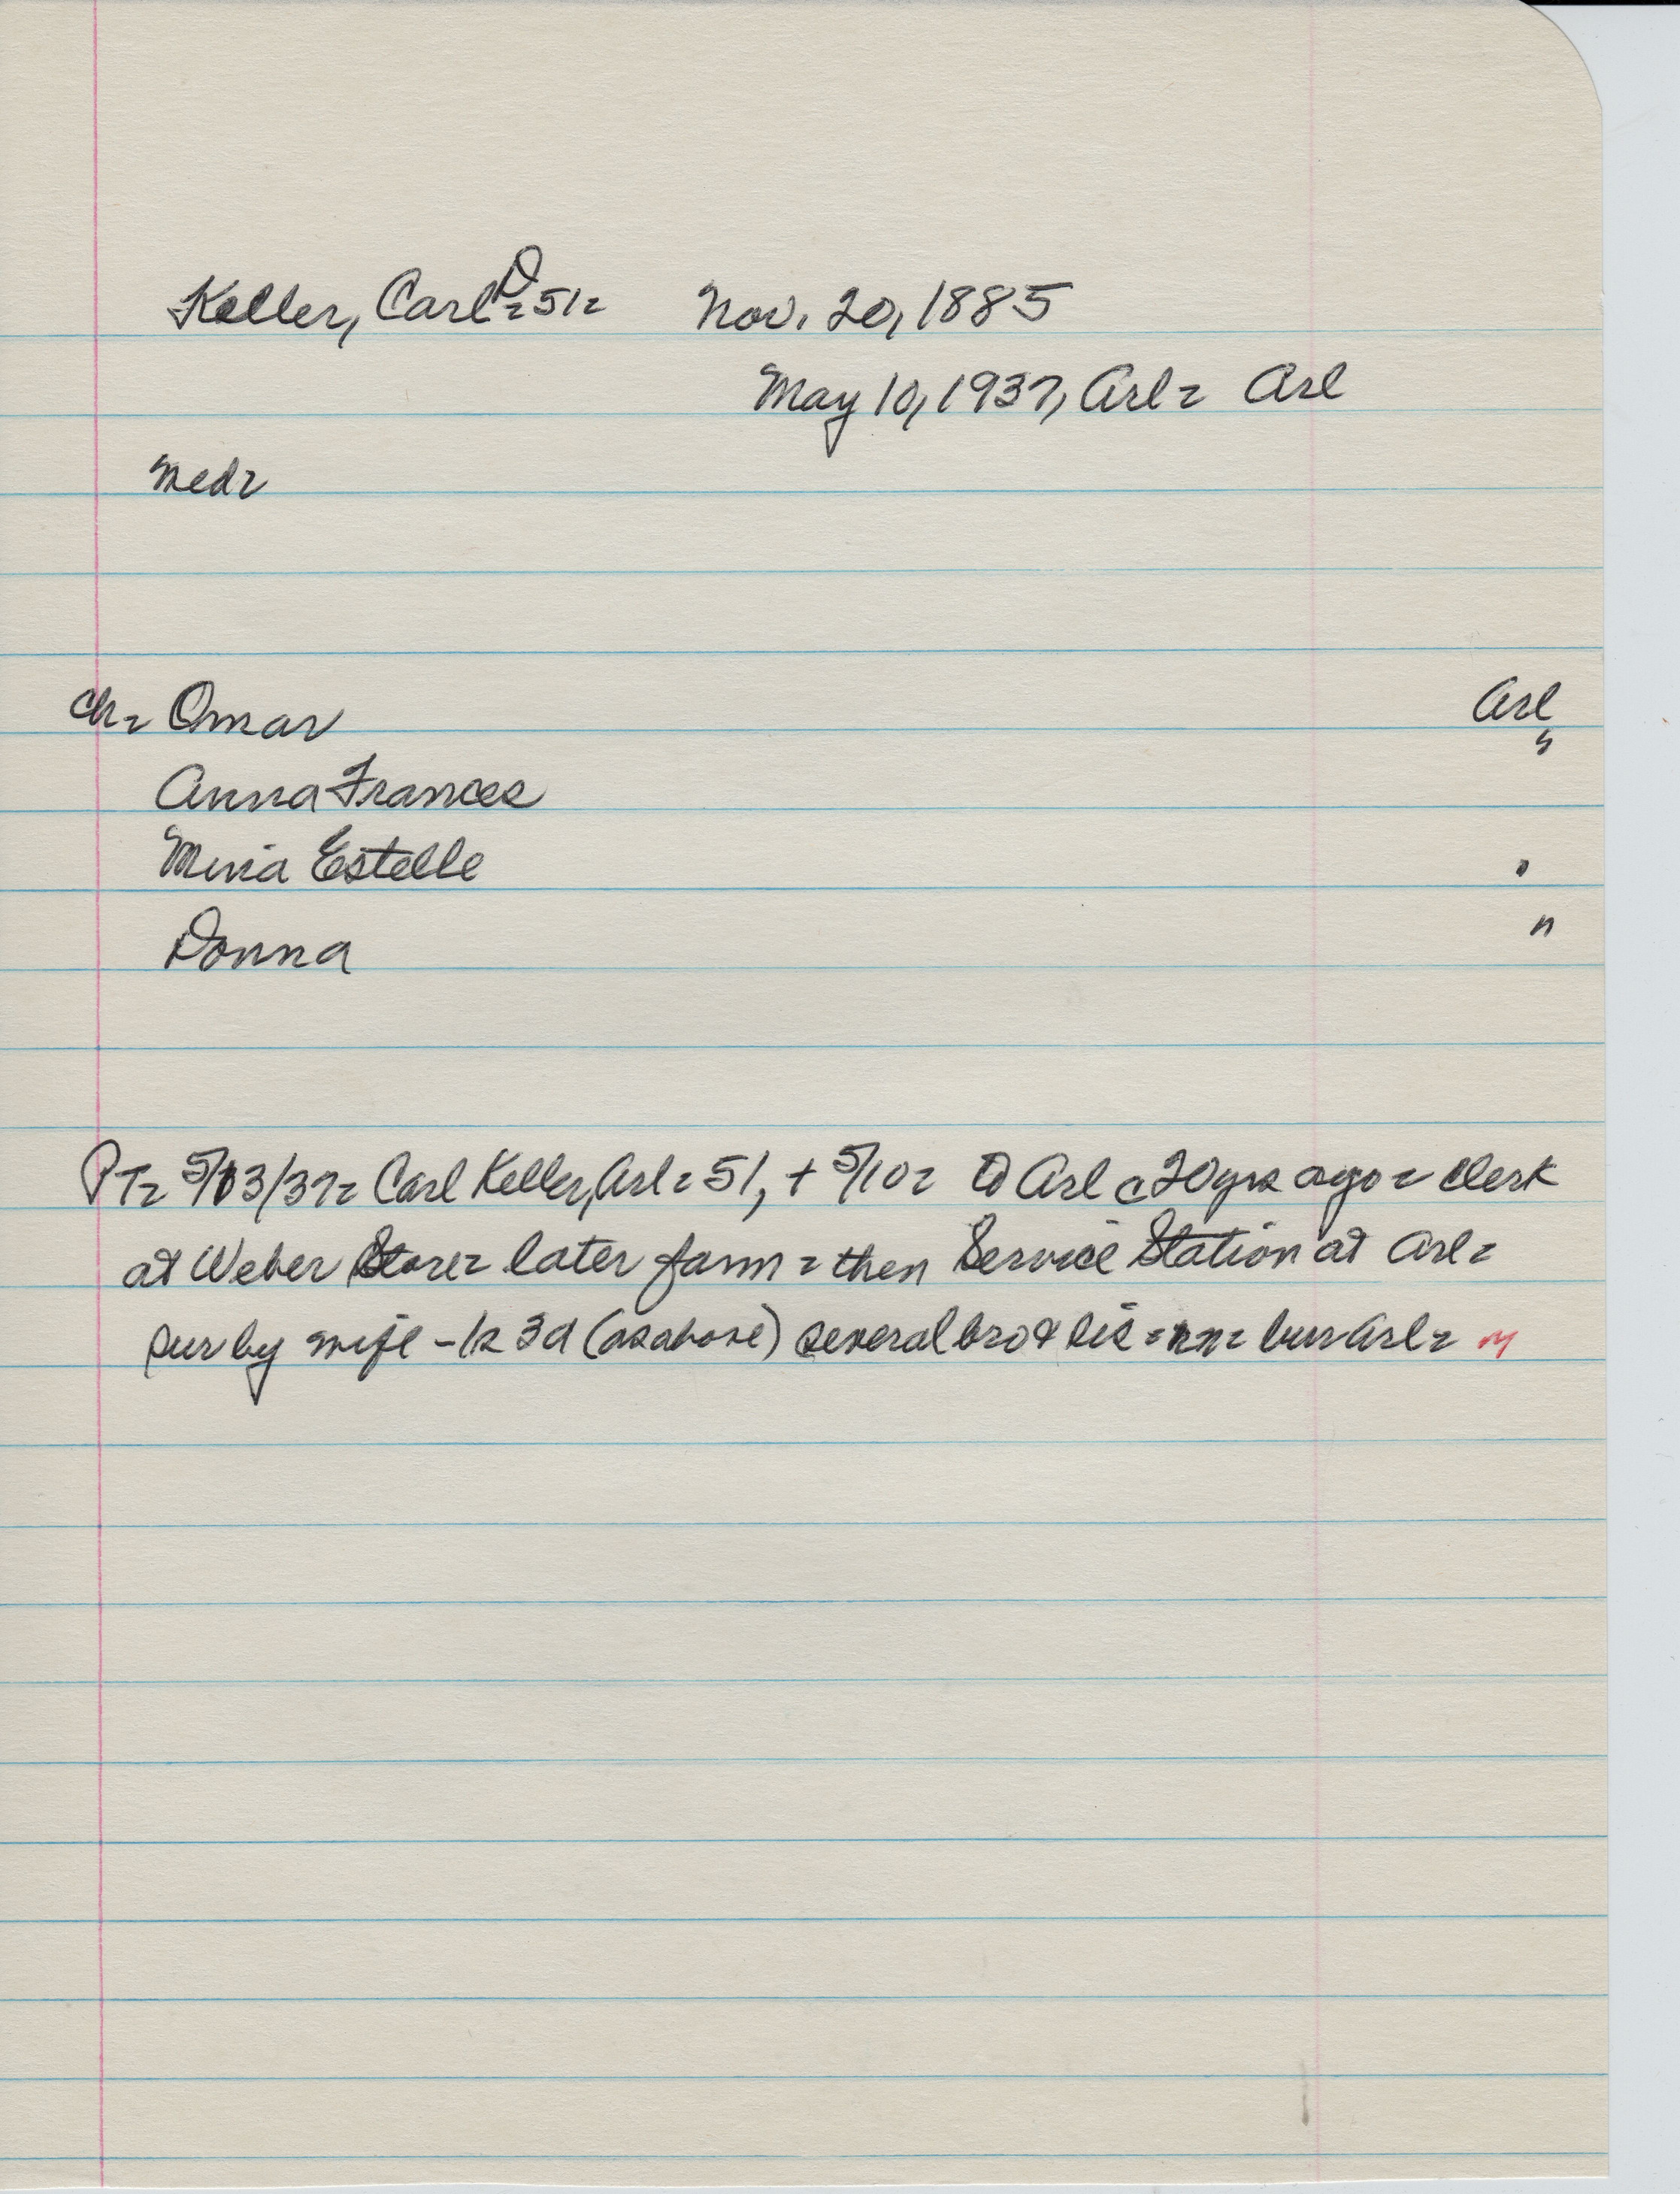 Keller, Carl D = 51 = Nov. 20, 1885
May 10, 1937, Arl = Arl
Med =
Ch = Omar Arl
Anna Frances "
Mina Estelle "
Donna "
PT = 5/13/37 = Carl Keller, Arl = 51, + 5/10 = to Arl c 20 yrs ago = clerk
at Weber Store = later farm = then Service Station at Arl =
sur by wife - 1s 3d (as above) several bro & sis = nn = bur Arl =